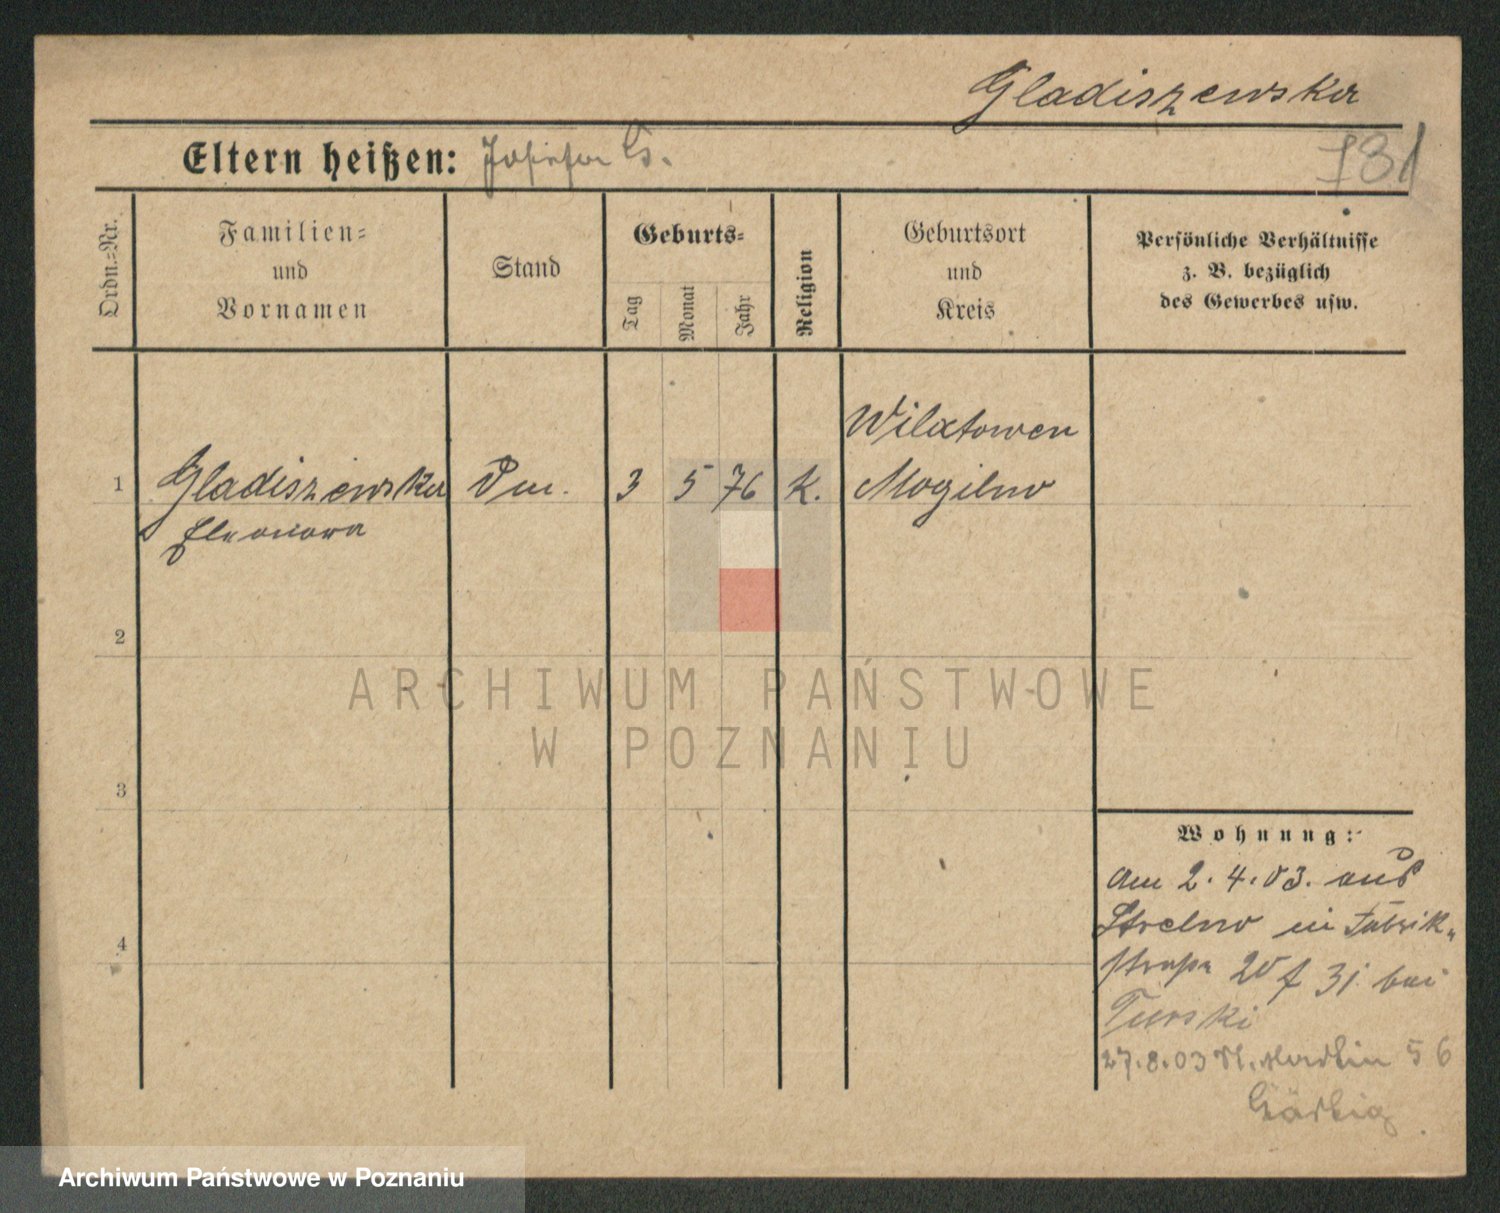 Gladiszewska
Eltern heißen: Josefa G.
781
Ordn.-Nr.
Familien-
und
Vornamen
Stand
Geburts-
Tag
Monat
Jahr
Religion
Geburtsort
und
Kreis
Persönliche Verhältnisse
z. B. bezüglich
des Gewerbes usw.
Wilatowen
1 Gladiszewska 3 5 76 k. Mogilno
Eleonora
2
ARCHIWUM PAŃSTWOWE
W POZNANIU
3
Wohnung:
Am 2.4.03. aus
Strelno in Fabrik-
straße 20 f 31 bei
Turski
27.8.03 56
4
Archiwum Państwowe w Poznaniu